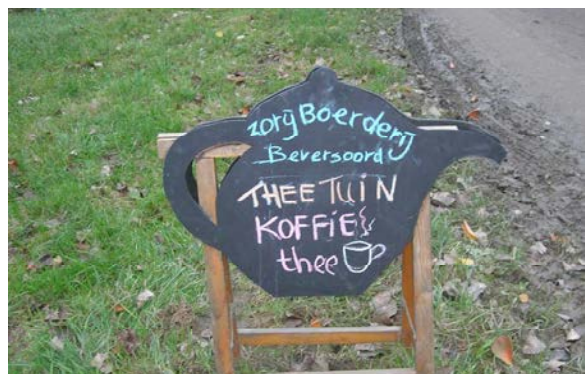 zorgBoerderij
Beversoord
THEETUIN
KOFFIE
thee